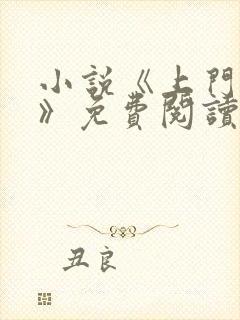 小説《上門
》免費閱讀
丑良